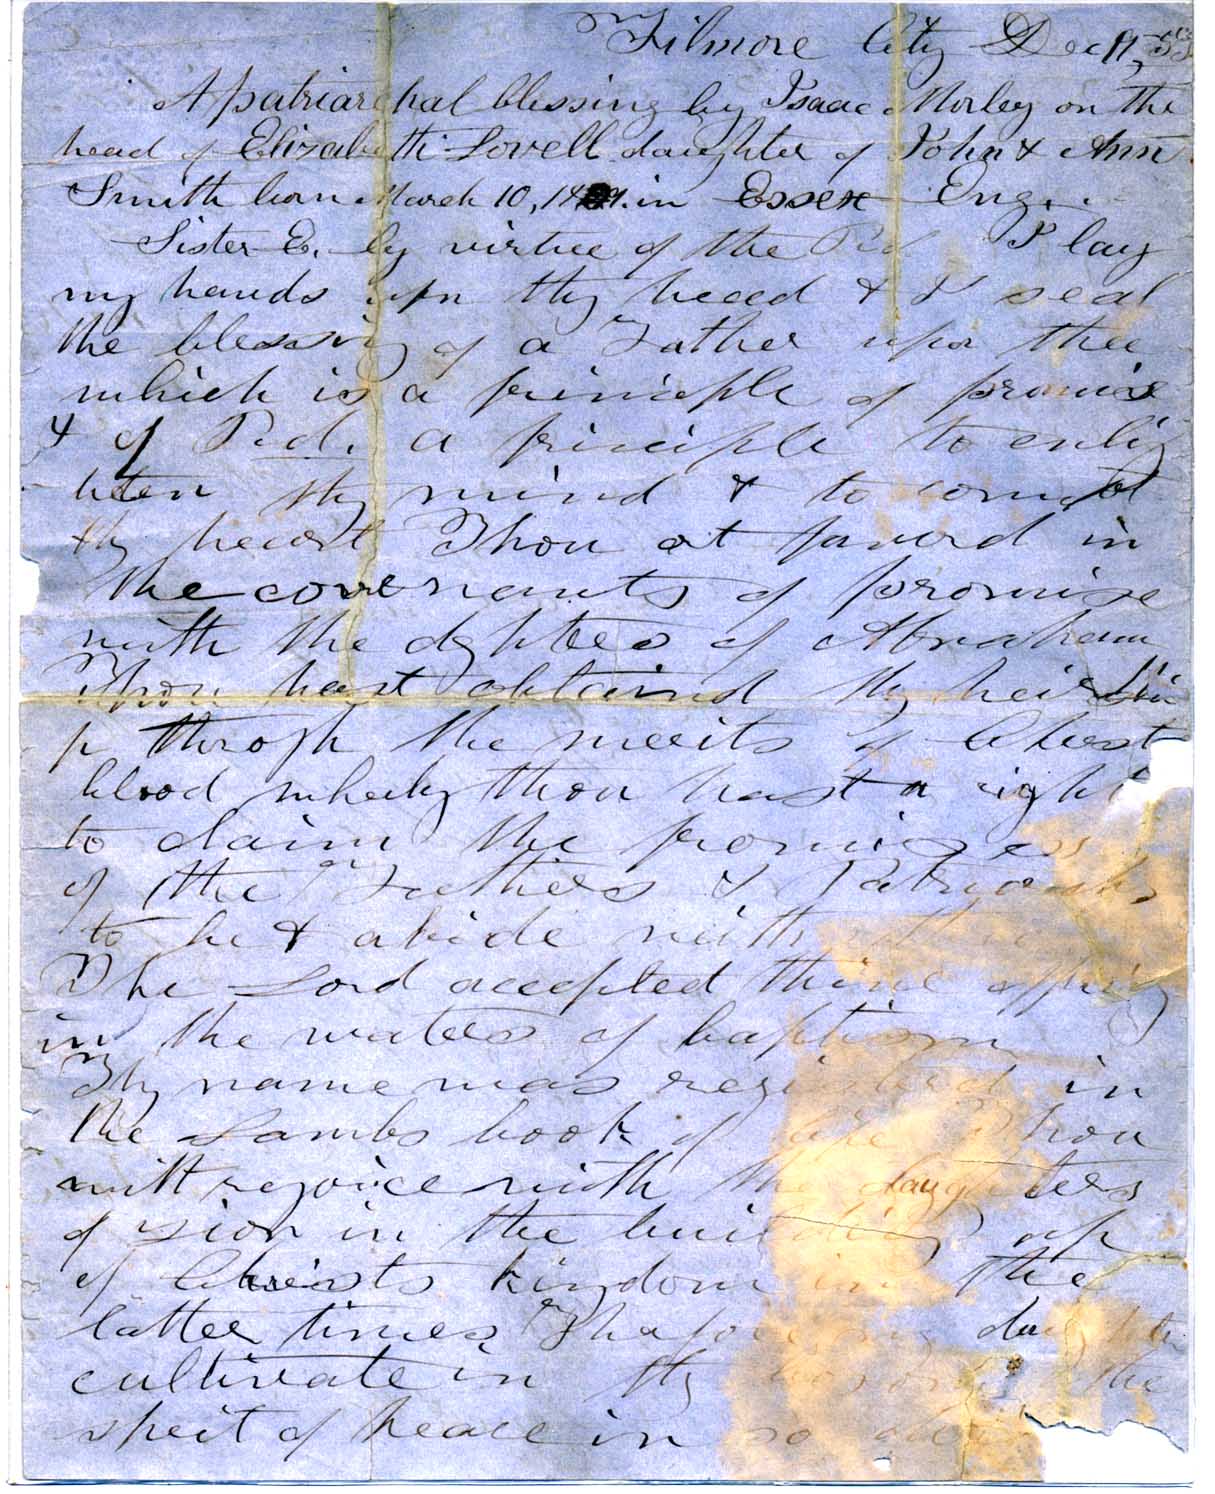 Filmore City Dec 9, 53
A patriarchal blessing by Isaac Morley on the
head of Elizabeth Lovell daughter of John & Ann
Smith born March 10, in Essex Eng.
Sister E. by virtue of the P.d I lay
my hands upn thy head & I seal
the blessing of a Father upon thee
which is a principle of promise
& of P.d. a principle to enlig
hten thy mind & to comfot
thy heart Thou at favord in
the covenants of promise
with the dghters of Abraham
Thou hast obtaind thy heirshi
p throgh the merits of Christ
blood whereby thou hast a right
to claim the promises
of the Fathers & Patriarchs
to be & abide with
The Lord accepted thine offring
in the waters of baptism
Thy name was registerd in
the Lambs book of life Thou
wilt rejoice with the daughters
of Zion in the building up
of Christs kingdom in the
latter times my daughter
cultivate in thy the
spirit of peace in so